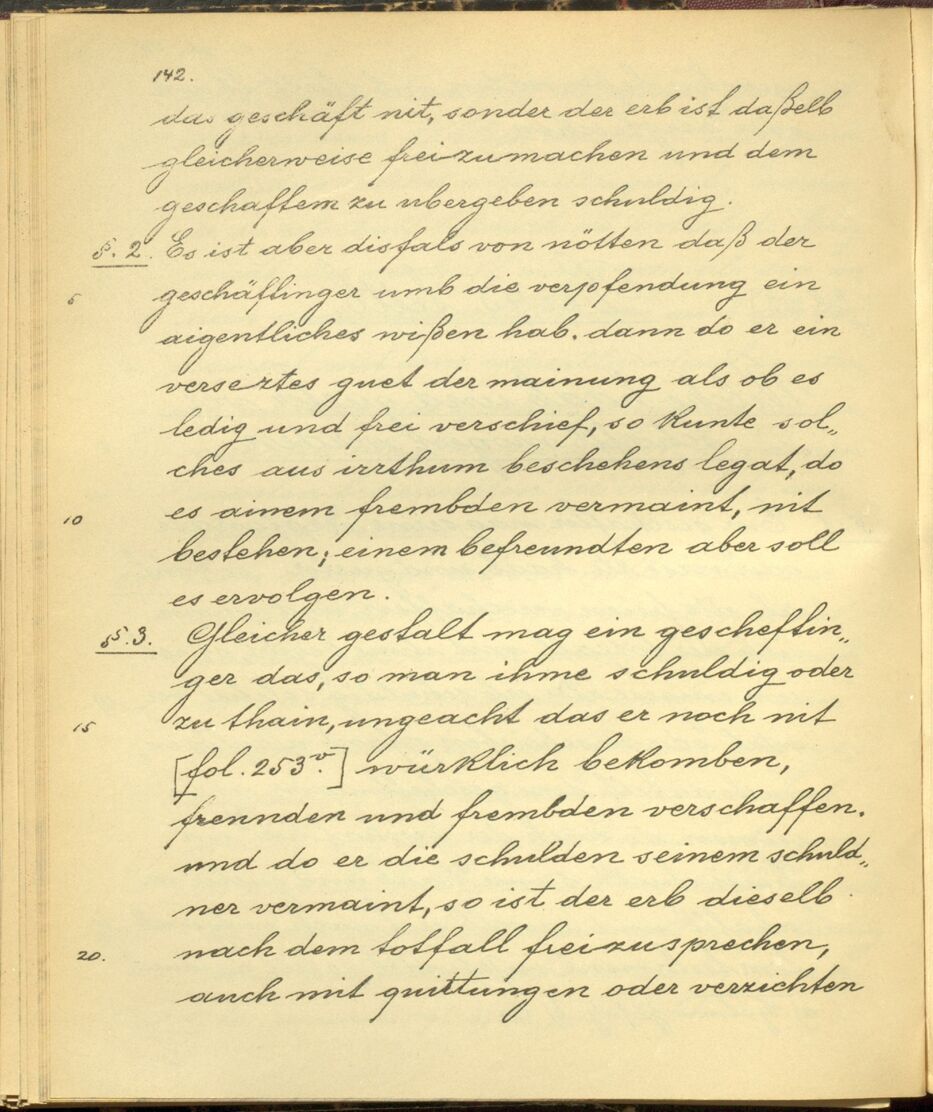 142.
das geschäft nit, sonder der erb ist daßelb
gleicherweise frei zu machen und dem
geschafftem zu ubergeben schuldig.
§. 2. Es ist aber disfals von nötten daß der
5 geschäftinger umb die verpfendung ein
aigentliches wißen hab. dann do er ein
verseztes guet der mainung als ob es
ledig und frei verschief, so kunte sol„
ches aus irrthum beschehens legat, do
10 es ainem frembden vermaint, nit
bestehen; einem befreundten aber soll
es ervolgen.
§. 3. Gleicher gestalt mag ein gescheftin„
ger das, so man ihme schuldig oder
15 zu thain, ungeacht das er noch nit
[fol. 253v.] würklich bekomben,
frennden und frembden verschaffen.
und do er die schulden seinem schuld„
ner vermaint, so ist der erb dieselb
20. nach dem totfall frei zu sprechen,
auch mit quittungen oder verzichten